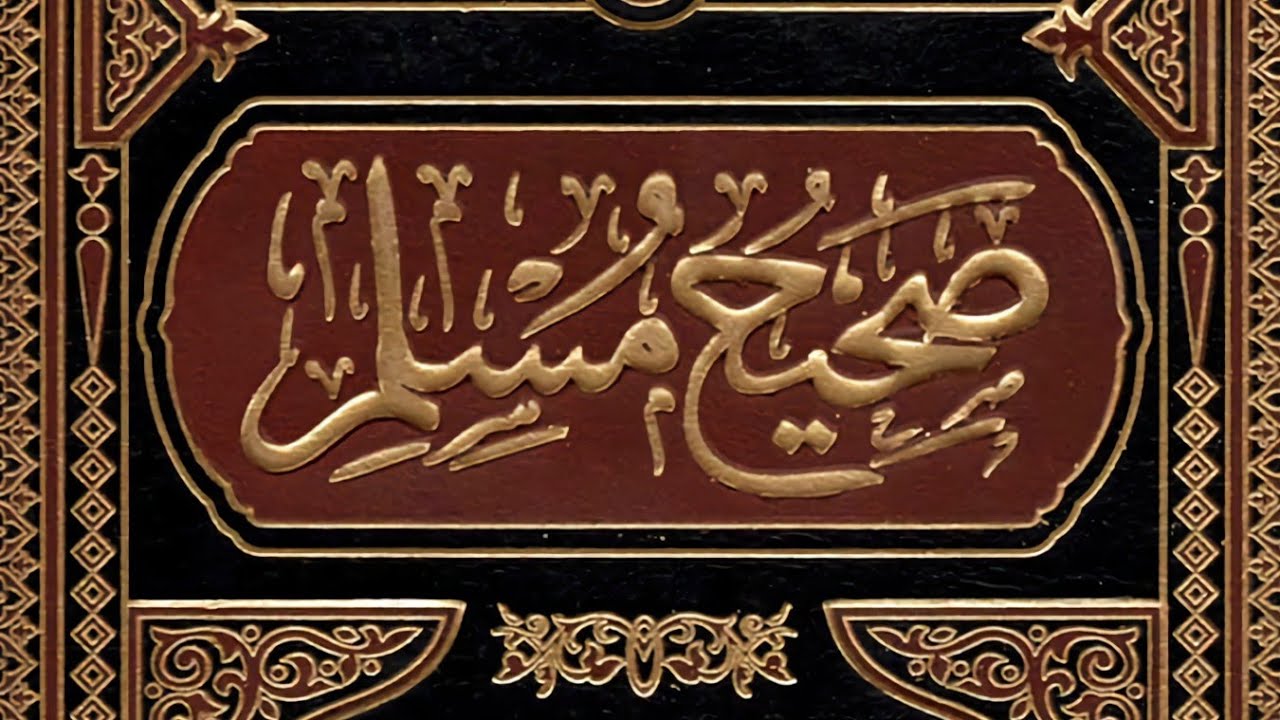 صَحِيحُ مُسْلِمٍ